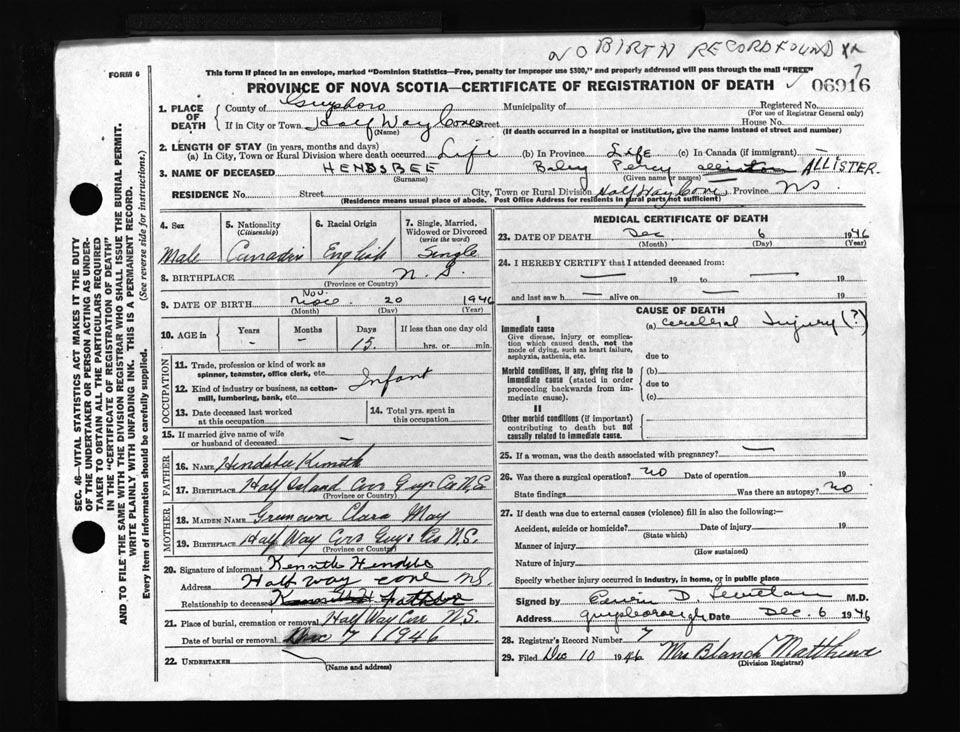 NO BIRTH RECORD FOUND
FORM 6
This form if placed in an envelope, marked "Dominion Statistics—Free, penalty for improper use $300," and properly addressed will pass through the mail "FREE"
PROVINCE OF NOVA SCOTIA—CERTIFICATE OF REGISTRATION OF DEATH
06916
1. PLACE OF DEATH
County of Guysboro Municipality of Registered No.
(For use of Registrar General only)
If in City or Town Half Way Cove Street House No.
(Name) (If death occurred in a hospital or institution, give the name instead of street and number)
2. LENGTH OF STAY (in years, months and days)
(a) In City, Town or Rural Division where death occurred Life (b) In Province Life (c) In Canada (if immigrant) —
3. NAME OF DECEASED HENDSBEE Percy ALLISTER.
(Surname) (Given name or names)
RESIDENCE No. Street City, Town or Rural Division Half Way Cove Province N.S.
(Residence means usual place of abode. Post Office Address for residents in rural parts not sufficient)
4. Sex
Male
5. Nationality
(Citizenship)
6. Racial Origin
English
7. Single, Married, Widowed or Divorced
(write the word)
Single
8. BIRTHPLACE N. S.
(Province or Country)
9. DATE OF BIRTH Nov. 20 1946
(Month) (Day) (Year)
10. AGE in
Years Months Days If less than one day old
- - 15. hrs. or min.
OCCUPATION
11. Trade, profession or kind of work as spinner, teamster, office clerk, etc.
12. Kind of industry or business, as cotton-mill, lumbering, bank, etc.
Infant
13. Date deceased last worked at this occupation
14. Total yrs. spent in this occupation
15. If married give name of wife or husband of deceased —
FATHER
16. NAME
17. BIRTHPLACE Half Island Cove Guys Co N.S.
(Province or Country)
MOTHER
18. MAIDEN NAME Clara May
19. BIRTHPLACE Half Way Cove Guys Co N.S.
(Province or Country)
20. Signature of informant Kenneth Hendsbee
Address Half way cove N.S.
Relationship to deceased father
21. Place of burial, cremation or removal Half Way Cove N.S.
Date of burial or removal Dec 7 1946
22. UNDERTAKER
(Name and address)
MEDICAL CERTIFICATE OF DEATH
23. DATE OF DEATH Dec 6 1946
(Month) (Day) (Year)
24. I HEREBY CERTIFY that I attended deceased from:
— 19 to — 19
and last saw h — alive on — 19
CAUSE OF DEATH
I
Immediate cause
Give disease, injury or complication which caused death, not the mode of dying, such as heart failure, asphyxia, asthenia, etc.
(a) cerebral Injury (?)
due to
Morbid conditions, if any, giving rise to immediate cause (stated in order proceeding backwards from immediate cause).
(b)
due to
(c)
II
Other morbid conditions (if important) contributing to death but not causally related to immediate cause.
25. If a woman, was the death associated with pregnancy? —
26. Was there a surgical operation? no Date of operation 19
State findings Was there an autopsy? no
27. If death was due to external causes (violence) fill in also the following:—
Accident, suicide or homicide? Date of injury 19
(State which)
Manner of injury
(How sustained)
Nature of injury
Specify whether injury occurred in industry, in home, or in public place
Signed by Edwin D M.D.
Address Guysborough Date Dec. 6 1946
28. Registrar's Record Number 7
29. Filed Dec 10 1946 Mrs Blanch Matthews
(Division Registrar)
SEC. 46—VITAL STATISTICS ACT MAKES IT THE DUTY
OF THE UNDERTAKER OR PERSON ACTING AS UNDER-
TAKER TO OBTAIN ALL THE PARTICULARS REQUIRED
IN THE "CERTIFICATE OF REGISTRATION OF DEATH"
AND TO FILE THE SAME WITH THE DIVISION REGISTRAR WHO SHALL ISSUE THE BURIAL PERMIT.
WRITE PLAINLY WITH UNFADING INK. THIS IS A PERMANENT RECORD.
Every item of information should be carefully supplied. (See reverse side for instructions.)